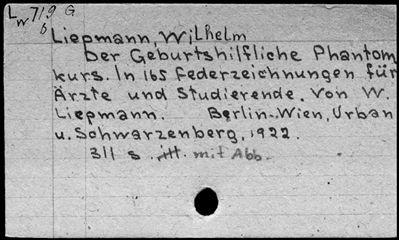 Lw 719 G
6
Liepmann, Wilhelm
Der Geburtshilfliche Phantom
kurs. In 165 Federzeichnungen für
Ärzte und Studierende. Von W.
Liepmann. Berlin-Wien, Urban
u. Schwarzenberg, 1922.
311 s. mit Abb.